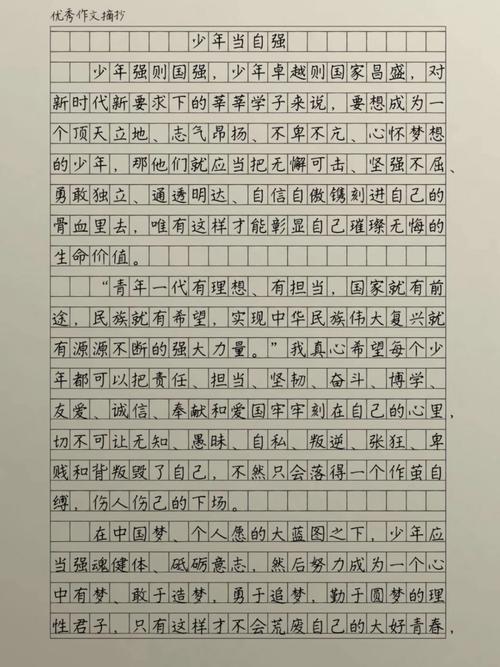 优秀作文摘抄
少年当自强
少年强则国强，少年卓越则国家昌盛，对
新时代新要求下的莘莘学子来说，要想成为一
个顶天立地、志气昂扬、不卑不亢、心怀梦想
的少年，那他们就应当把无懈可击、坚强不屈、
勇敢独立、通透明达、自信自傲镌刻进自己的
骨血里去，唯有这样才能彰显自己璀璨无悔的
生命价值。
“青年一代有理想、有担当，国家就有前
途，民族就有希望，实现中华民族伟大复兴就
有源源不断的强大力量。”我真心希望每个少
年都可以把责任、担当、坚韧、奋斗、博学、
友爱、诚信、奉献和爱国牢牢刻在自己的心里，
切不可让无知、愚昧、自私、叛逆、张狂、卑
贱和背叛毁了自己，不然只会落得一个作茧自
缚，伤人伤己的下场。
在中国梦、个人愿的大蓝图之下，少年应
当强魂健体、砥砺意志，然后努力成为一个心
中有梦、敢于造梦，勇于追梦，勤于圆梦的理
性君子，只有这样才不会荒废自己的大好青春，